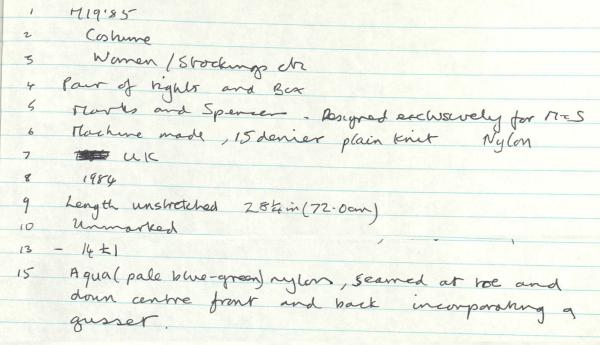 1 M19'85
2 Costume
3 Women / Stockings etc
4 Pair of tights and Box
5 Marks and Spencer - Designed exclusively for M+S
6 Machine made, 15 denier plain knit Nylon
7 UK
8 1984
9 Length unstretched 28¼in (72.0cm)
10 Unmarked
13 -
15 Aqua (pale blue-green) nylon, seamed at toe and
down centre front and back incorporating a
gusset.